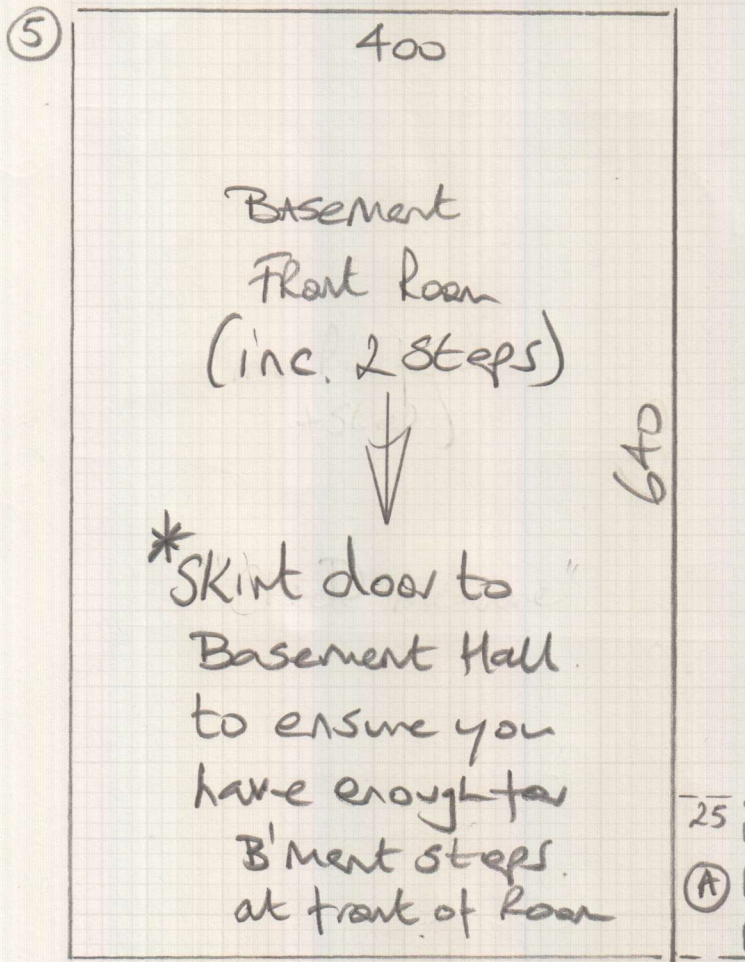 5
400
Basement
Front Room
(inc. 2 Steps)
640
*Skirt door to
Basement Hall
to ensure you
have enough for
B'ment steps
at front of Room
25
A